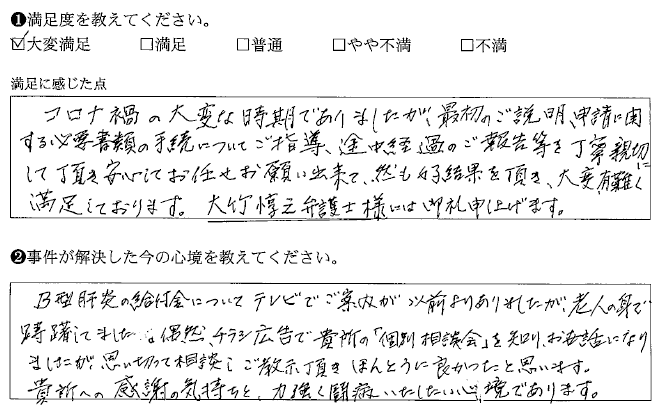 ❶満足度を教えてください。
☑大変満足 □満足 □普通 □やや不満 □不満
満足に感じた点
コロナ禍の大変な時期でありましたが、最初のご説明、申請に関
する必要書類の手続についてご指導、途中経過のご報告等を丁寧親切に
して頂き安心してお任せお願い出来て、然も好結果を頂き、大変有難く
満足しております。大竹惇之弁護士様には御礼申上げます。
❷事件が解決した今の心境を教えてください。
B型肝炎の給付金についてテレビでご案内が以前よりありましたが、老人の身で
躊躇してました。偶然、チラシ広告で貴所の「個別相談会」を知り、お世話になり
ましたが、思い切って相談しご教示頂きほんとうに良かったと思います。
貴所への感謝の気持ちと、力強く闘病いたしたい心境であります。